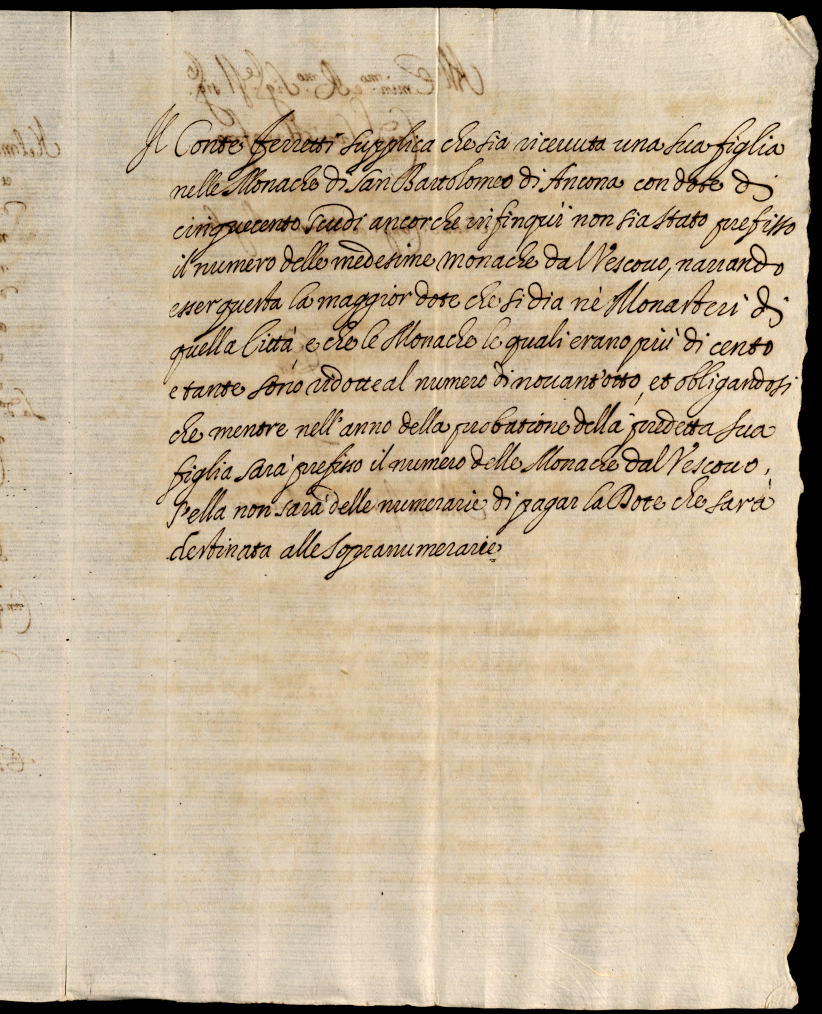 Il Conte Ferretti supplica che sia riceuuta una sua figlia
nelle Monache di San Bartolomeo di Ancona con dote di
cinquecento scudi ancorche infinqui non sia stato prefisso
il numero delle medesime monache dal Vescouo, narrando
esser questa la maggior dote che si dia nè Monasterij di
quella Città, e che le Monache le quali erano più di cento
e tante sono ridotte al numero di nouant'otto, et obligandosi
che mentre nell'anno della probatione della predetta sua
figlia sarà prefisso il numero delle Monache dal Vescouo,
s'ella non sarà delle numerarie di pagar la Dote che sarà
destinata alle sopranumerarie